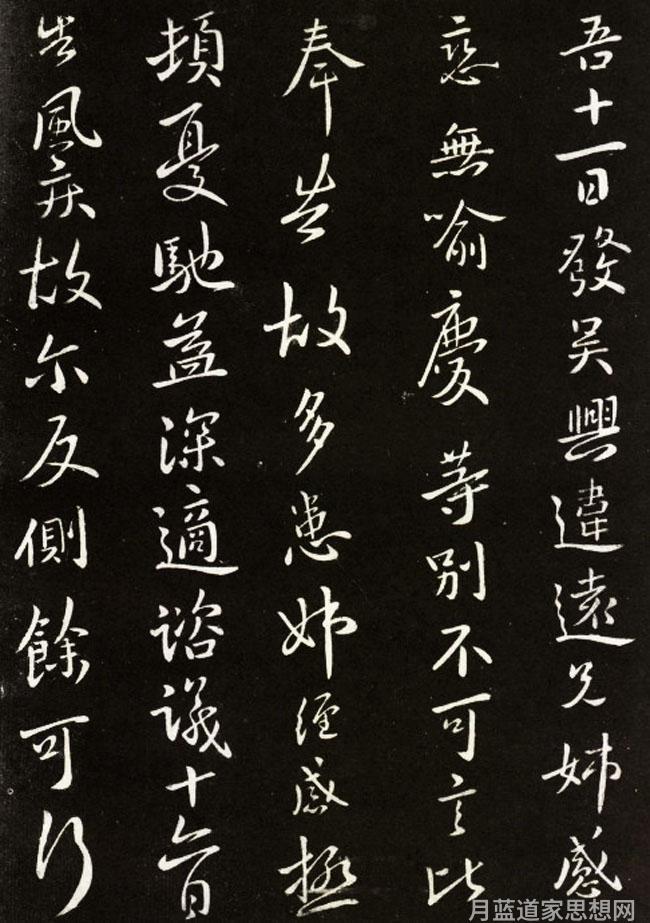 吾十一日發吳興違遠兄姊感
戀無喻慶等別不可言比
奉告故多患姊經感極
頓憂馳益深適諮議十六日
告風疾故尔反側餘可行
月蓝道家思想网